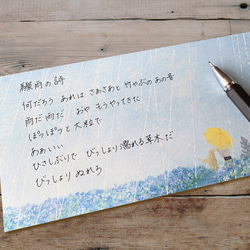 驟雨の詩
何だろう あれは さあさあと 竹やぶの あの音
雨だ 雨だ おや もうやってきた
ぽつぽつと 大粒で
ああいい
ひさしぶりで びっしょり 濡れる 草木だ
びっしょり ぬれろ